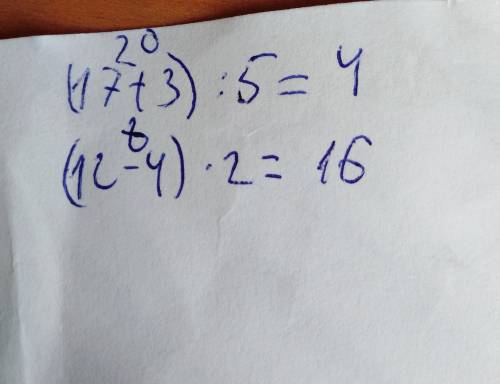 20
(17+3) : 5 = 4
8
(12-4) · 2 = 16